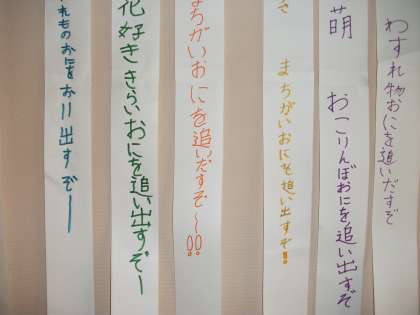 わすれ物おにを追いだすぞ
萌 おこりんぼおにを追い出すぞ
そ まちがいおにを追い出すぞ!!
まちがいおにを追いだすぞ〜!!
花好ききらいおにを追い出すぞー
れものおにをおい出すぞー